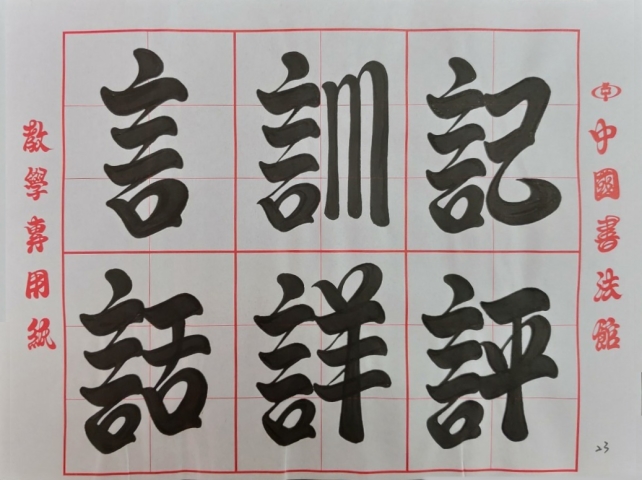 中國書法館
言訓記
話詳評
教學專用紙
23